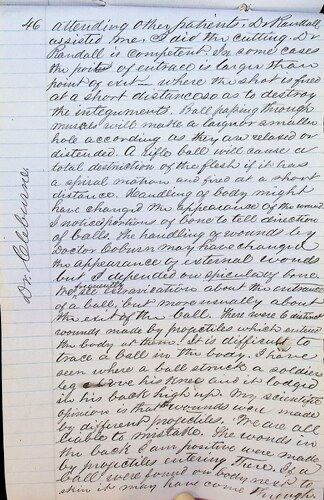 46 attending other patients. Dr Randall
assisted me. I did the cutting. Dr
Randall is competent. In some cases
the point of entrace is larger than
point of exit - where the shot is fired
at a short distance so as to destroy
the integuments. Ball passing through
muscles will make a larger or smaller
hole according as they are relaxed or
distended. A rifle ball will cause a
total destruction of the flesh if it has
a spiral motion and fired at a short
distance. Handling of body might
have changed the appearance of the wound
I notice portions of bone to tell direction
of ball. The handling of wounds by
Doctor Coburn may have changed
the appearance of external wounds
but I depended on spiculae of bone.
generally
about the entrance
of a ball; but more usually about
the exit of the ball. There were 10 distinct
wounds made by projectiles which entered
the body at them. It is difficult to
trace a ball in the body. I have
seen where a ball struck a soldier's
leg above his knee and it lodged
in his back high up. My scientific
opinion is that wounds were made
by different projectiles. We are all
liable to mistake. The wounds in
the back I am positive were made
by projectiles entering there. If a
ball were found on body next to
skin it may have come through
Dr. Clebrane